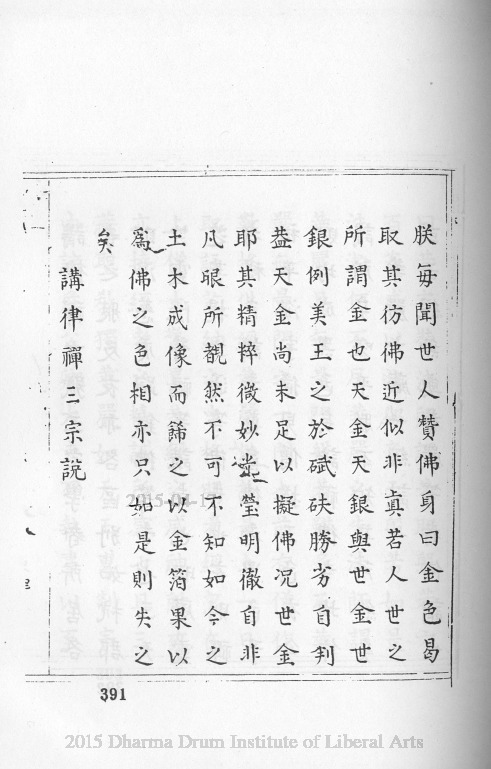 朕每聞世人贊佛身曰金色曷
取其彷佛近似非真若人世之
所謂金也天金天銀與世金世
銀例美玉之於碔砆勝劣自判
葢天金尚未足以擬佛况世金
耶其精粹微妙光瑩明徹自非
凡眼所覩然不可不知如今之
土木成像而餙之以金箔果以
爲佛之色相亦只如是則失之
矣
講律禪三宗說
391
2015-04-17
2015 Dharma Drum Institute of Liberal Arts